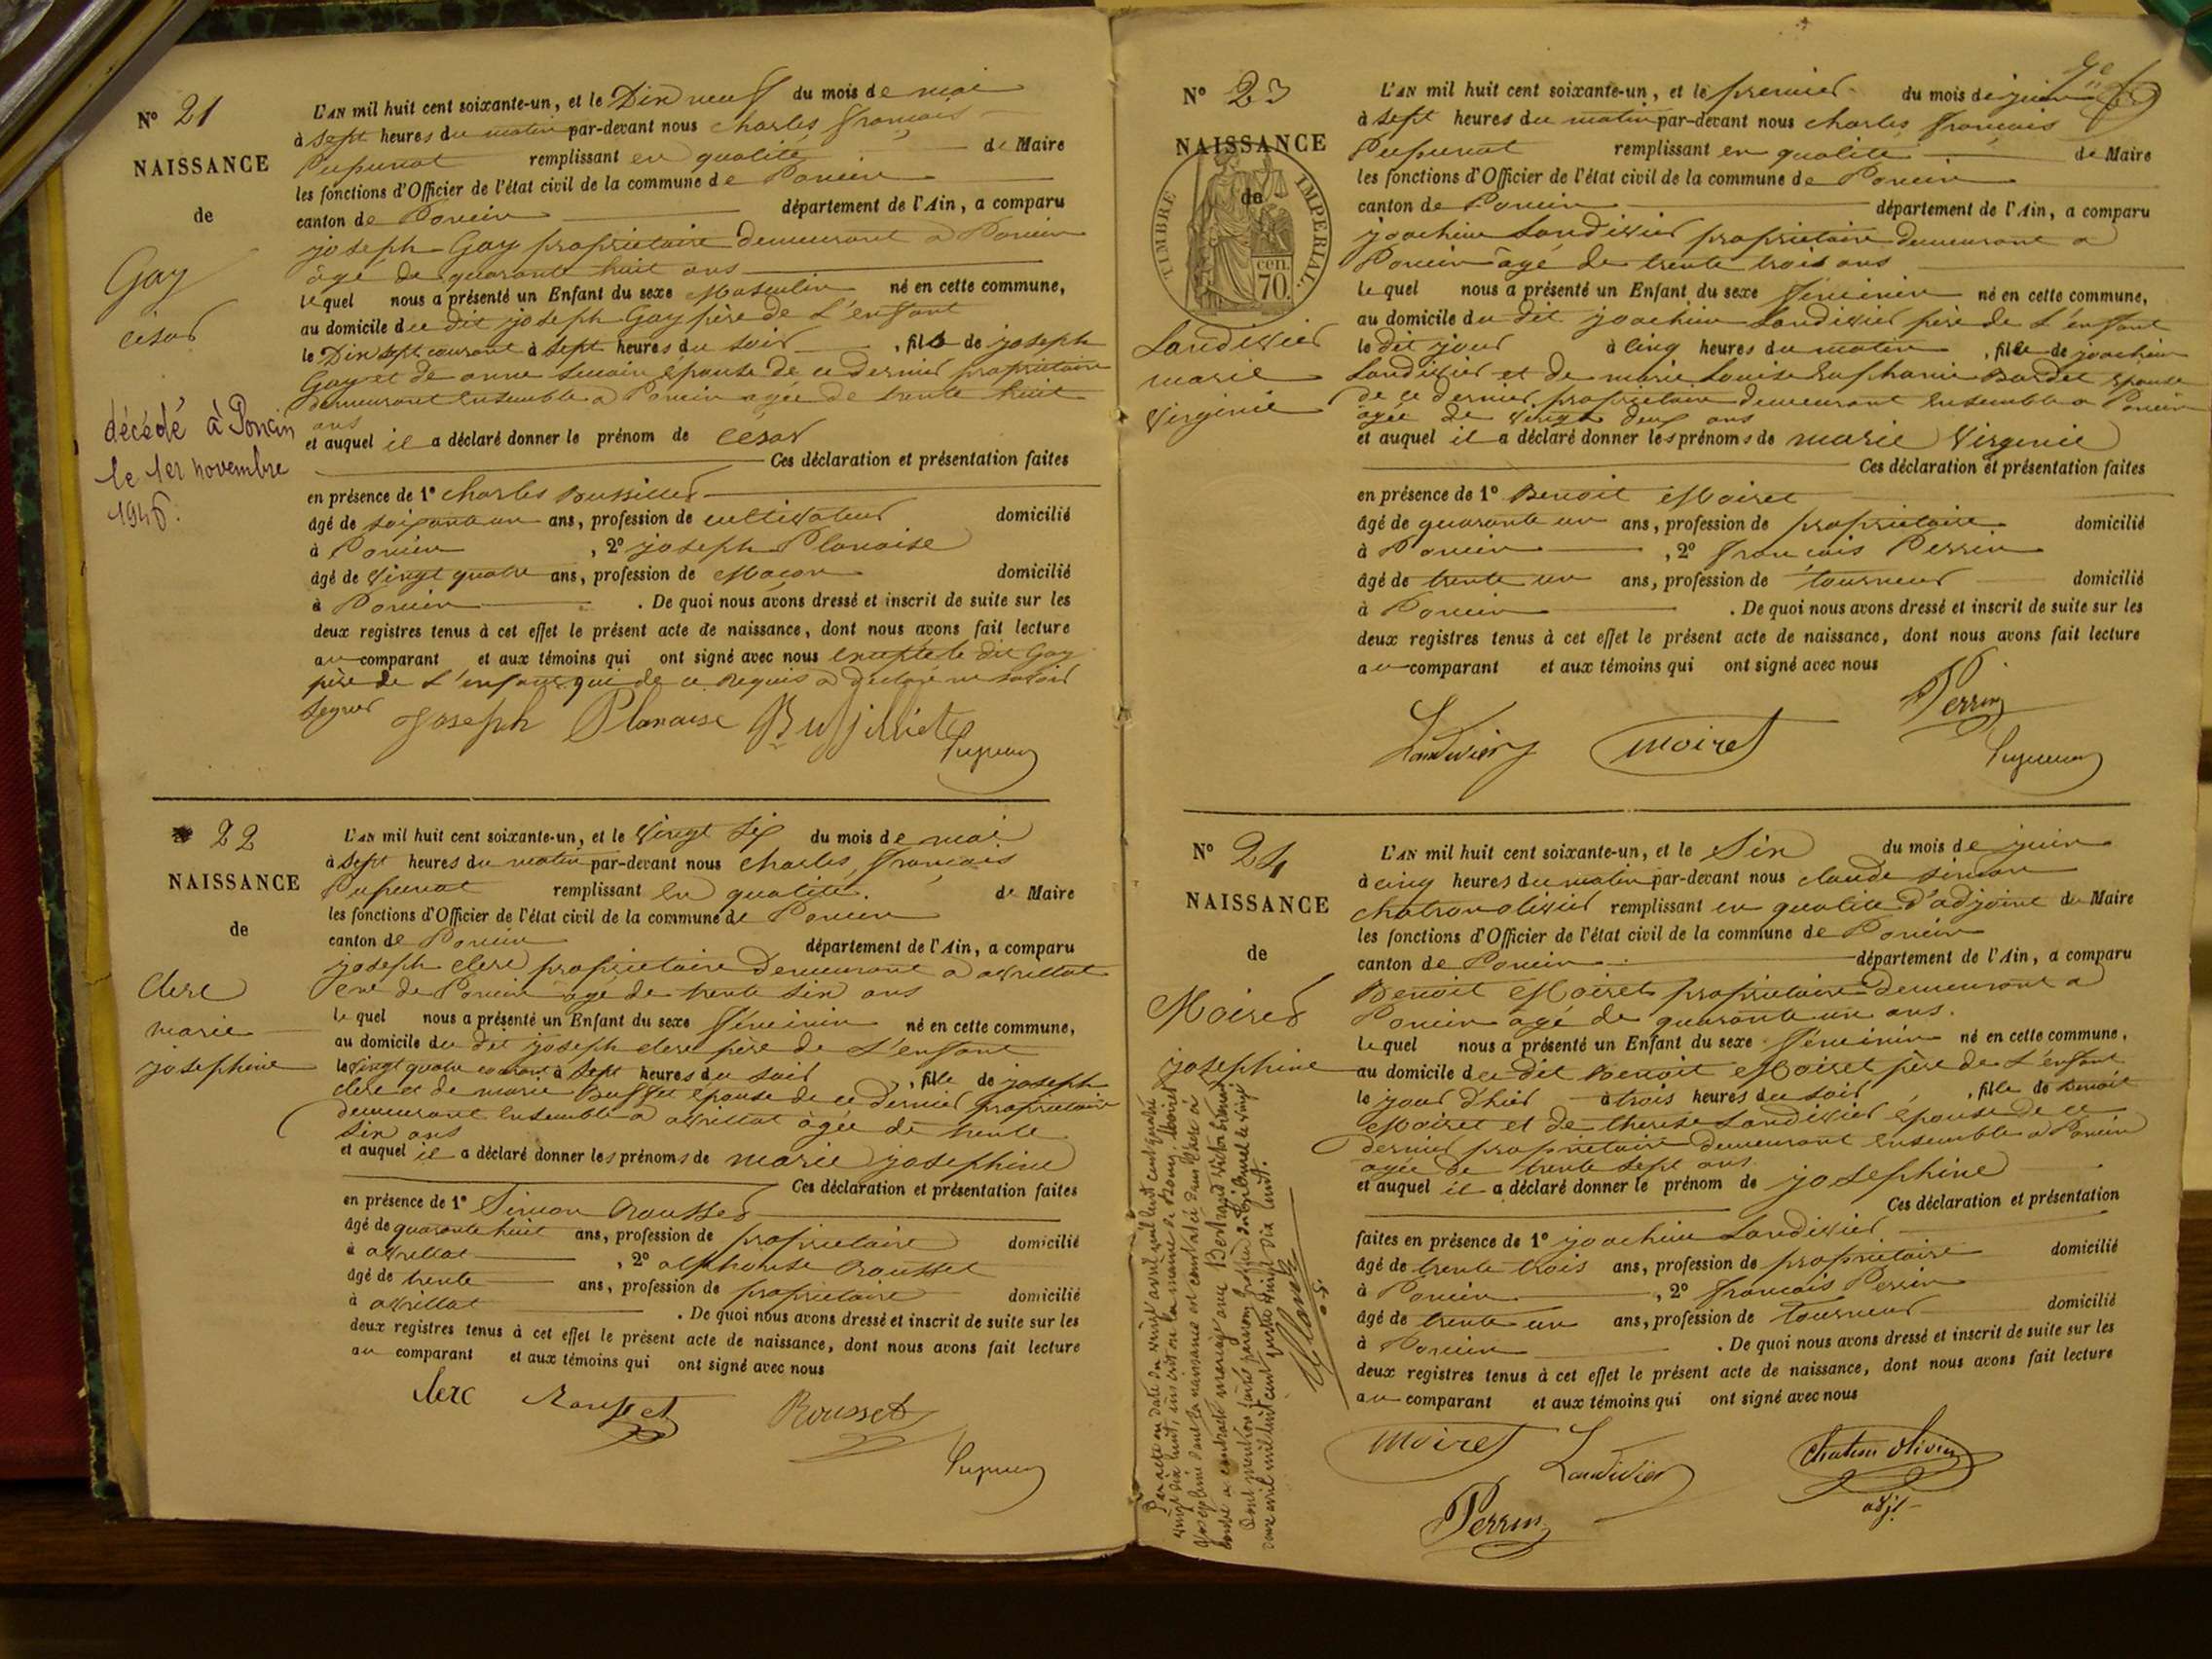 N° 21
NAISSANCE
de
Gay
César
décédé à Poncin
le 1er novembre
1946.
L'AN mil huit cent soixante-un, et le Dix neuf du mois de mai
à sept heures du matin par-devant nous charles françois
Pupunat remplissant en qualité de Maire
les fonctions d'Officier de l'état civil de la commune de Poncin
canton de Poncin département de l'Ain, a comparu
joseph Gay propriétaire demeurant a Poncin
âgé de quarante huit ans
lequel nous a présenté un Enfant du sexe Masculin né en cette commune,
au domicile du dit joseph Gay père de L'enfant
le Dix sept courant à sept heures du soir, fils de joseph
Gay et de anne épouse de ce dernier propriétaire
demeurant ensemble a Poncin agée de trente huit
ans
et auquel il a déclaré donner le prénom de César
Ces déclaration et présentation faites
en présence de 1° Charles Bussillet
âgé de soixante un ans, profession de cultivateur domicilié
à Poncin, 2° joseph Planaise
âgé de vingt quatre ans, profession de Maçon domicilié
à Poncin. De quoi nous avons dressé et inscrit de suite sur les
deux registres tenus à cet effet le présent acte de naissance, dont nous avons fait lecture
au comparant et aux témoins qui ont signé avec nous excepté le dit Gay
père de L'enfant qui de ce Requis a déclaré ne savoir
signer
Joseph Planaise Bussilliet
Pupunat
22
NAISSANCE
de
Clerc
marie
josephine
L'AN mil huit cent soixante-un, et le vingt six du mois de mai
à sept heures du matin par-devant nous charles françois
Pupunat remplissant en qualité de Maire
les fonctions d'Officier de l'état civil de la commune de Poncin
canton de Poncin département de l'Ain, a comparu
joseph clerc propriétaire Demeurant a avrillat
cne de Poncin agé de trente six ans
lequel nous a présenté un Enfant du sexe féminin né en cette commune,
au domicile du dit joseph clerc père de L'enfant
le vingt quatre courant à sept heures du soir, fille de joseph
clerc et de marie épouse de ce dernier propriétaire
demeurant ensemble a avrillat âgée de trente
six ans
et auquel il a déclaré donner les prénoms de marie josephine
Ces déclaration et présentation faites
en présence de 1° Simon Rousset
âgé de quarante huit ans, profession de propriétaire domicilié
à avrillat, 2° alphonse Rousset
âgé de trente ans, profession de propriétaire domicilié
à avrillat. De quoi nous avons dressé et inscrit de suite sur les
deux registres tenus à cet effet le présent acte de naissance, dont nous avons fait lecture
au comparant et aux témoins qui ont signé avec nous
clerc Rousset Rousset
Pupunat
N° 23
NAISSANCE
de
TIMBRE IMPERIAL.
cen.
70.
Landivier
marie
Virginie
L'AN mil huit cent soixante-un, et le premier du mois de juin
à sept heures du matin par-devant nous charles françois
Pupunat remplissant en qualité de Maire
les fonctions d'Officier de l'état civil de la commune de Poncin
canton de Poncin département de l'Ain, a comparu
joachim Landivier propriétaire demeurant a
Poncin âgé de trente trois ans
lequel nous a présenté un Enfant du sexe féminin né en cette commune,
au domicile du dit joachim Landivier père de L'enfant
le dit jour à cinq heures du matin, fille de joachim
Landivier et de marie Louise Bardet épouse
de ce dernier propriétaire demeurant ensemble a Poncin
agée de vingt deux ans
et auquel il a déclaré donner les prénoms de marie Virginie
Ces déclaration et présentation faites
en présence de 1° Benoit Moiret
âgé de quarante un ans, profession de propriétaire domicilié
à Poncin, 2° françois Perrin
âgé de trente un ans, profession de tourneur domicilié
à Poncin. De quoi nous avons dressé et inscrit de suite sur les
deux registres tenus à cet effet le présent acte de naissance, dont nous avons fait lecture
au comparant et aux témoins qui ont signé avec nous
Perrin
Landivier moiret
Pupunat
N° 24
NAISSANCE
de
Moiret
josephine
L'AN mil huit cent soixante-un, et le Six du mois de juin
à cinq heures du matin par-devant nous claude simeon
chatron olivier remplissant en qualité d'adjoint du Maire
les fonctions d'Officier de l'état civil de la commune de Poncin
canton de Poncin département de l'Ain, a comparu
Benoit Moiret propriétaire Demeurant a
Poncin agé de quarante un ans.
lequel nous a présenté un Enfant du sexe féminin né en cette commune,
au domicile du dit Benoit Moiret père de L'enfant
le jour d'hier à trois heures du soir, fille de Benoit
Moiret et de therese Landivier épouse de ce
dernier propriétaire demeurant ensemble a Poncin
agée de trente sept ans
et auquel il a déclaré donner le prénom de josephine
Ces déclaration et présentation
faites en présence de 1° joachim Landivier
âgé de trente trois ans, profession de propriétaire domicilié
à Poncin, 2° françois Perrin
âgé de trente un ans, profession de tourneur domicilié
à Poncin. De quoi nous avons dressé et inscrit de suite sur les
deux registres tenus à cet effet le présent acte de naissance, dont nous avons fait lecture
au comparant et aux témoins qui ont signé avec nous
moiret Landivier chatron olivier
Perrin adjt
Par acte en date du vingt avril mil huit cent quatre
vingt dix huit, inscrit à la mairie de Bourg, Moiret
Josephine dont la naissance est constatée dans l'acte ci
contre a contracté mariage avec Bertrand
Dont mention faite par nous greffier du tribunal le vingt
avril mil huit cent quatre vingt dix huit.